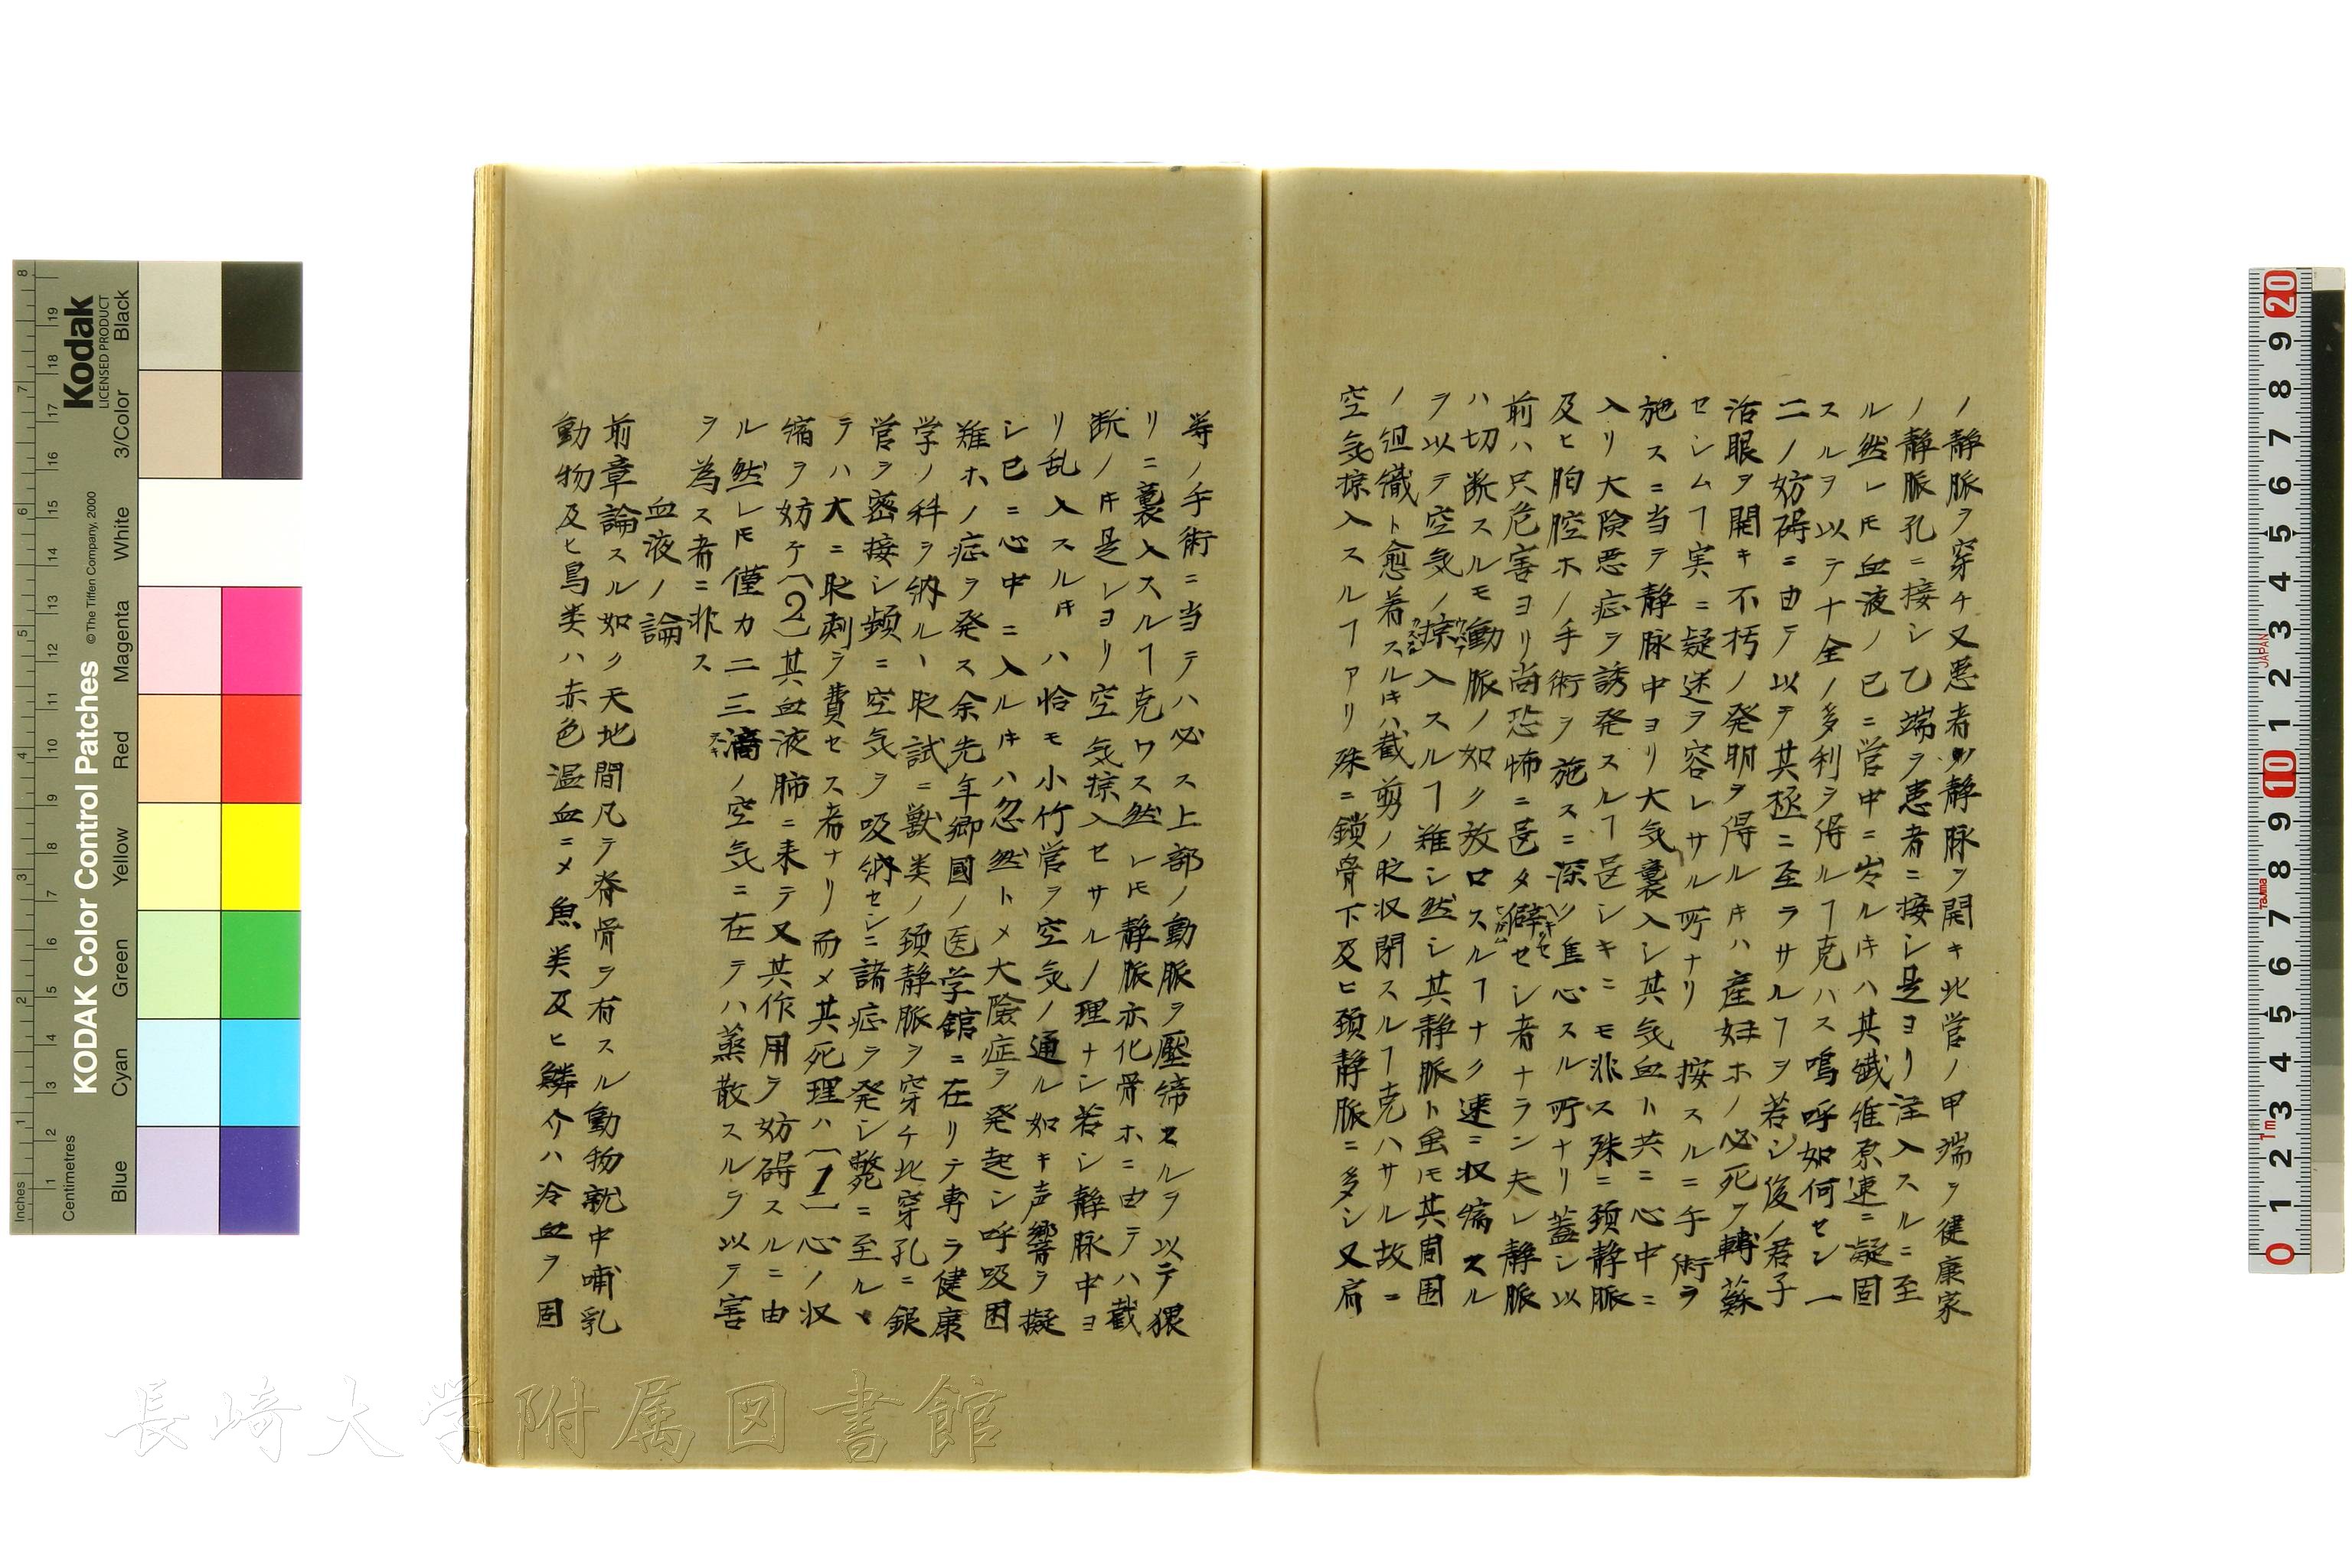 ノ静脈ヲ穿チ又悪者ノ静脉ヲ開キ此管ノ甲端ヲ健康家
ノ静脈孔ニ接シ乙端ヲ悪者ニ接シ是ヨリ注入スルニ至
ル然レ𪜈血液ノ已ニ管中ニ岑ルキハ其繊維原速ニ凝固
スルヲ以テ十全ノ多利ヲ得ルヿ克ハス嗚呼如何セン一
二ノ妨碍ニ由テ以テ其極ニ至ラサルヿヲ若シ後ノ君子
活眼ヲ開キ不朽ノ発明ヲ得ルキハ産婦ホノ必死ヲ轉蘇
セシムヿ実ニ疑迷ヲ容レサル所ナリ 按スルニ手術ヲ
施スニ当テ静脉中ヨリ大気裏入シ其気血ト共ニ心中ニ
入リ大険悪症ヲ誘発スルヿ邑シキニモ非ス殊ニ頚静脈
及ヒ胸腔ホノ手術ヲ施スニ深ク焦心スル所ナリ蓋シ以
前ハ只危害ヨリ尚恐怖ニ邑タ僻セシ者ナラン夫レ静脈
ハ切断スルモ動脈ノ如ク放口スルヿナク速ニ収縮スル
ヲ以テ空気ノ掠入スルヿ難シ然シ其静脈ト虽𪜈其周囲
ノ組織ト愈着スルキハ截剪ノ際収閉スルヿ克ハサル故ニ
空気掠入スルヿアリ殊ニ鎖骨下及ヒ頚静脈ニ多シ又肩
等ノ手術ニ当テハ必ス上部ノ動脈ヲ壓締スルヲ以テ猥
リニ裏入スルヿ克ワス然レ𪜈静脈亦化骨ホニ由テハ截
断ノキ是レヨリ空気掠入セサルノ理ナシ若シ静脉中ヨ
リ乱入スルキハ恰モ小竹管ヲ空気ノ通ル如キ声響ヲ擬
シ已ニ心中ニ入ルキハ忽然トメ大險症ヲ発起シ呼吸困
難ホノ症ヲ発ス余先年郷國ノ医学館ニ在リテ専ラ健康
学ノ科ヲ納ル丶際試ニ獣类ノ頚静脈ヲ穿チ此穿孔ニ銀
管ヲ密接シ頻ニ空気ヲ吸納セシニ諸症ヲ発シ斃ニ至ル丶
テハ大ニ際刺ヲ費セス者ナリ而メ其死理ハ〔1〕心ノ収
縮ヲ妨ケ〔2〕其血液肺ニ来テ又其作用ヲ妨碍スルニ由
ル然レ𪜈僅カ二三滴ノ空気ニ在テハ蒸散スルヲ以テ害
ヲ為ス者ニ非ス
血液ノ論
前章論スル如ク天地間凡テ脊骨ヲ有スル動物就中哺乳
動物及ヒ鳥类ハ赤色温血ニメ魚类及ヒ鱗介ハ冷血ヲ固
KODAK Color Control Patches © The Tiffen Company, 2000
Kodak LICENSED PRODUCT
Inches Centimetres
Blue Cyan Green Yellow Red Magenta White 3/Color Black
JAPAN
Tajima
長崎大学附属図書館